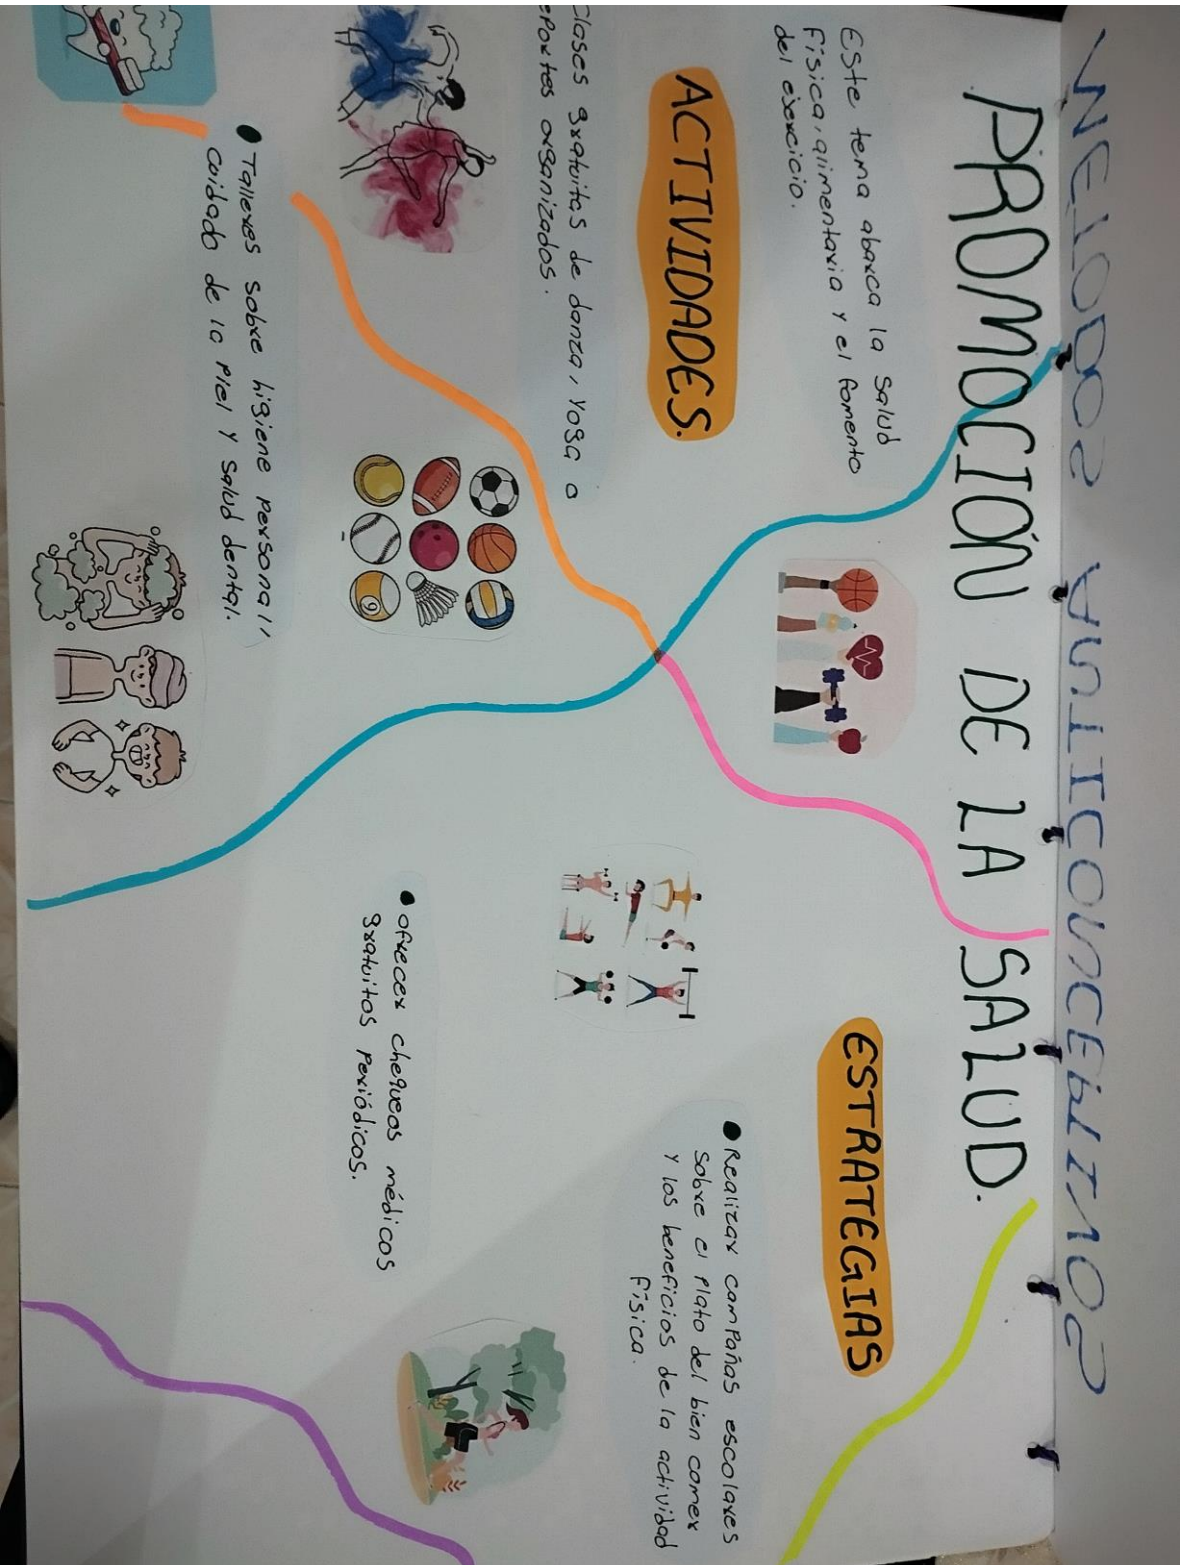 METODOS ANTICONCEPTIVOS
PROMOCIÓN DE LA SALUD.
Este tema abarca la salud
física, alimentaria y el fomento
del ejercicio.
ACTIVIDADES.
clases gratuitas de danza, yoga o
eportes organizados.
• Talleres sobre higiene personal,
cuidado de la piel y salud dental.
ESTRATEGIAS
• Realizar campañas escolares
sobre el plato del bien comer
y los beneficios de la actividad
física.
• ofrecer chequeos médicos
gratuitos periódicos.